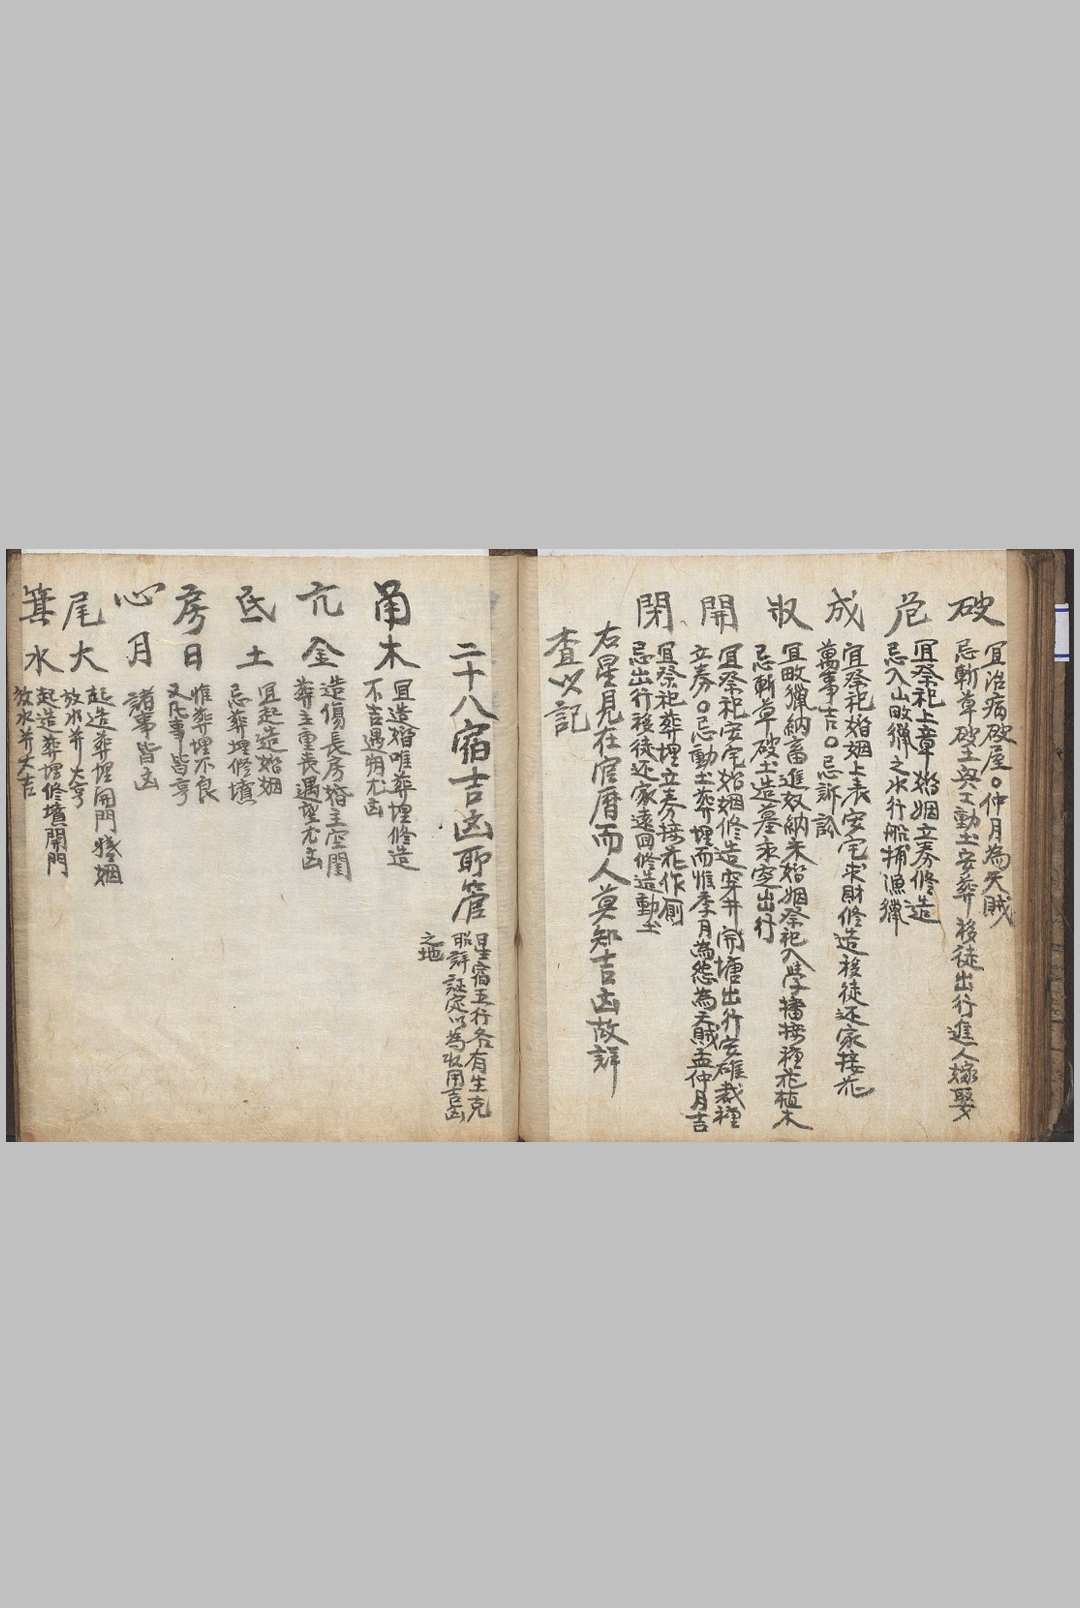 破
宜治病破屋○仲月為天賊
忌斬草破土與工動土安葬移徒出行進人嫁娶
危
宜祭祀上章婚姻立券修造
忌入山畋獵之水行船捕漁獵
成
宜祭祀婚姻上表安宅求財修造移徒还家接花
萬事吉○忌訴訟
収
宜畋獵納畜進奴納采婚姻祭祀入學播接種花植木
忌斬草破土造墓永定出行
開
宜祭祀安宅婚姻修造穿井開塘出行安碓栽種
立券○忌動土葬埋而惟季月為為天賊孟仲月吉
閉
宜祭祀葬埋立券接花作廁
忌出行移徒还家遠回修造動土
右星見在官曆而人莫知吉凶故詳
查以記
二十八宿吉凶所管
星宿五行各有生克
昭詳証定以為收用吉凶
之地
角木
宜造婚唯葬埋修造
不吉遇朔尤凶
亢金
造傷長房婚主空閨
葬主重喪遇望尤凶
氐土
宜起造婚姻
忌葬埋修墳
房日
惟葬埋不良
又凡事皆亨
心月
諸事皆凶
尾火
起造葬埋開門婚姻
放水并大亨
箕水
起造葬埋修墳開門
放水并大吉